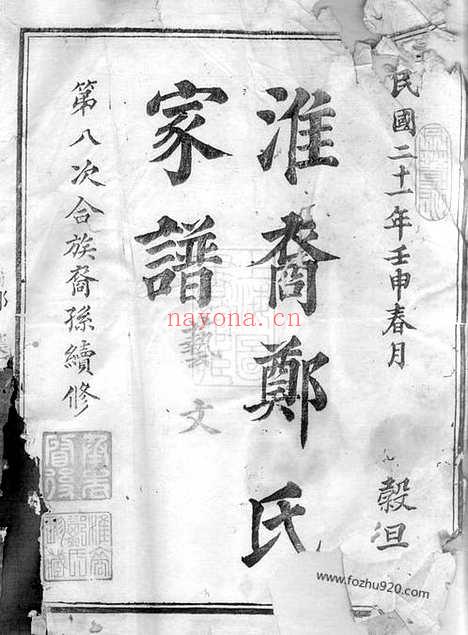 民國二十一年壬申春月
穀沮
淮裔鄭氏
家譜
藝文
第八次合族裔孫續修
nayona.cn
www.fozhu920.com